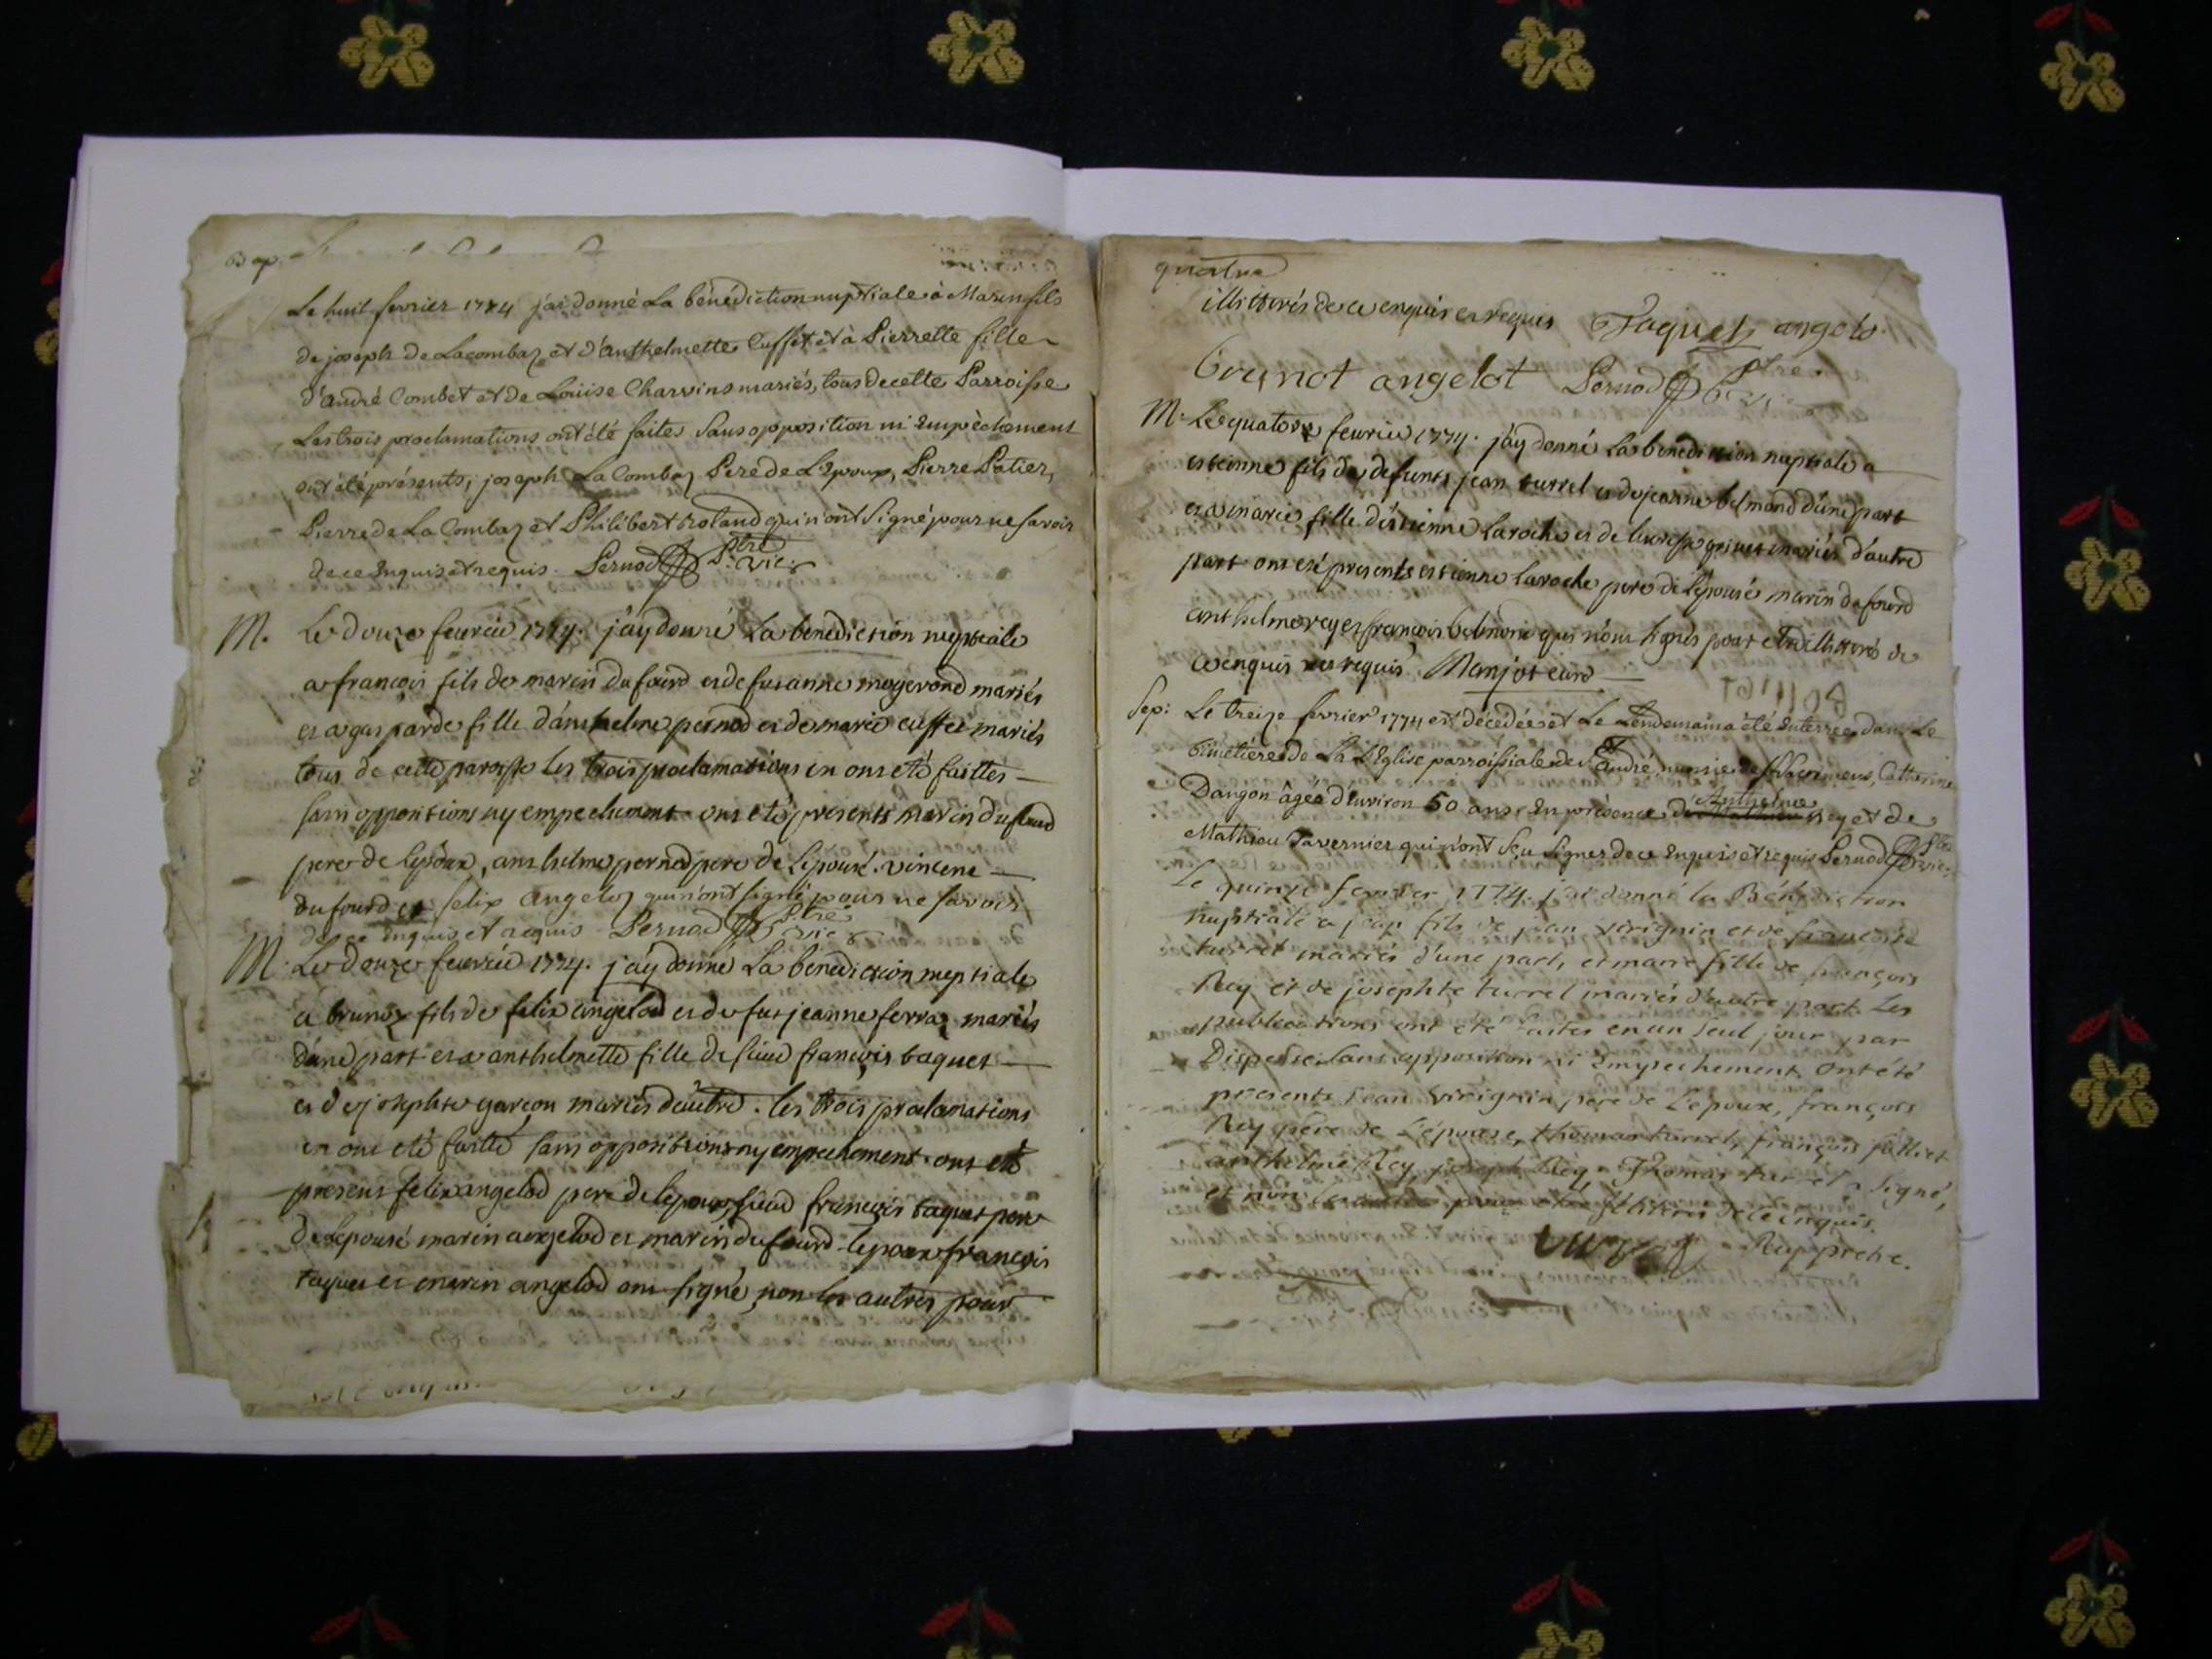 Bap.
Le huit fevrier 1774 j'ai donné La bénédiction nuptiale à Marin fils
de joseph de Lacombaz et d'anthelmette Cuffet et à Pierrette fille
d'andré Combet et de Loüise Charvins mariés, tous de cette Parroisse
Les trois proclamations ont été faites Sans opposition ni Empèchement
ont été présents, joseph La Combaz Pere de L'Epoux, Pierre Patier,
Pierre de La Combaz et Philibert Roland qui n'ont Signé pour ne Savoir
de ce Enquis et requis. Pernod Ptre Vic.
M. Le douze feuvrié 1774. j'ay donné La benediction nuptiale
a francois fils de marin dufourd et de fusanne mogerond mariés
et a gasparde fille d'anthelme pernod et de marie cuffet mariés
tous de cette paroisse les trois proclamations en ont eté faittes
sans oppontions ny empechement ont eté présents marin dufourd
pere de lepoux, anthelme pernod pere de l'epouse. vincent
dufourd et felix angeloz qui n'ont signé pour ne savoir
de ce enquis et requis Pernod Ptre vic
M. Le douze feuvrié 1774. j'ay donné La benediction nuptiale
a brunoz fils de felix angelod et de fut jeanne ferraz mariés
d'une part et a anthelmette fille de sieur francois taquet
et de josephte garçon mariés d'autre. les trois proclamations
en ont eté faitte sans oppositions ny empechement ont eté
presens felix angelod pere de lepoux, sieur francois taquet pere
de Lepouse marin angelod et marin dufourd lepoux francois
taquet et marin angelod ont signé, non les autres pour
quatre
illitterés de ce enquis et requis Taquet angelo
Brunot angelot Pernod Ptre vic
M. Le quatorze feuvrié 1774. j'ay donné La benediction nuptiale a
estienne fils de defunts jean turrel et de jeanne belmond d'une part
et a marie fille d'estienne Laroche et de mariés d'autre
part ont eté presents estienne Laroche pere de l'epouse marin dufourd
anthelme rey et francois belmond qui n'ont signés pour etre illitterés de
ce enquis et requis Manjot curé
Sep: Le treize fevrier 1774 est décédée et Le Lendemain a été Enterrée dans Le
Cimetière de La L'Eglise parroissiale de St André, munie de Sacremens, Catherine
Dangon âgée d'environ 60 ans, En présence de Anthelme Rey et de
Mathieu Tavernier qui n'ont Sçu Signer de ce Enquis et requis Pernod Ptre vic.
Le quinze fevrier 1774. j'ai donné la Bénédiction
nuptiale a jean fils de jean virignin et de francoise
turret mariés d'une part, et marie fille de françois
Rey et de josephte turrel mariés d'autre part. Les
publications ont été faites en un seul jour par
Dispense, Sans opposition ni Empechement. ont été
presents jean virignin pere de L'epoux, françois
Rey père de L'épouse, thomas turret, françois jullict
anthelme Rey, joseph Rey. Thomas turret a signé,
et non les autres pour etre Illiterés de ce enquis.
Rey pretre.